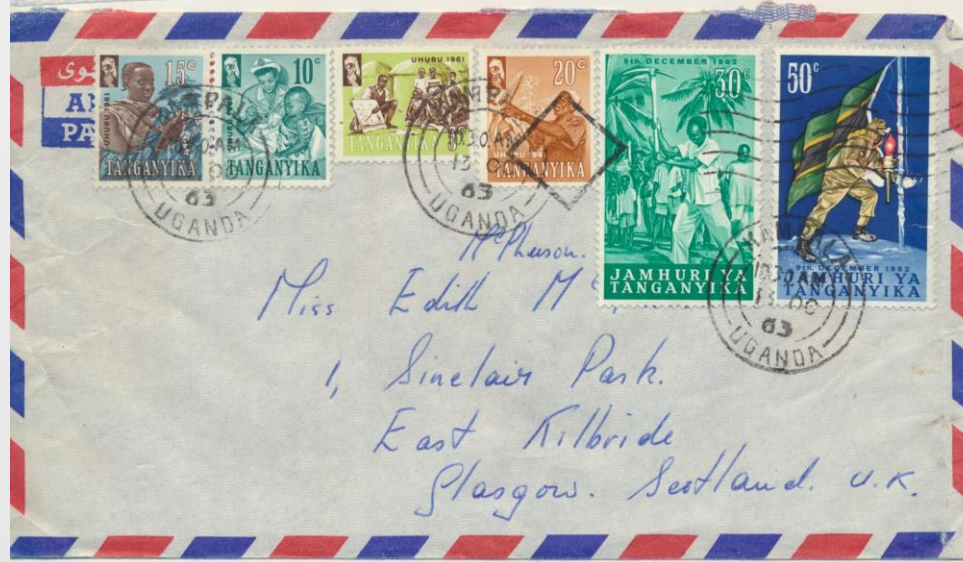 15c
UHURU 1961
TANGANYIKA
10c
TANGANYIKA
UHURU 1961
TANGANYIKA
20c
UHURU 1961
TANGANYIKA
9th. DECEMBER 1962
30c
JAMHURI YA
TANGANYIKA
50c
9th. DECEMBER 1962
JAMHURI YA
TANGANYIKA
UGANDA
63
KAMPALA
10.30 AM
63
UGANDA
KAMPALA
10.30 AM
63
UGANDA
McPherson.
Miss Edith
1, Sinclair Park.
East Kilbride
Glasgow. Scotland. U.K.